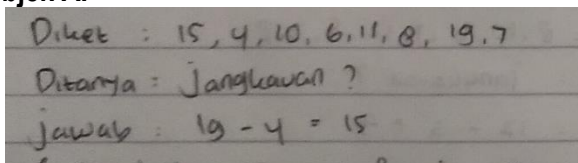 Diket : 15, 4, 10, 6, 11, 8, 19, 7
Ditanya : Jangkauan ?
Jawab : 19 - 4 = 15